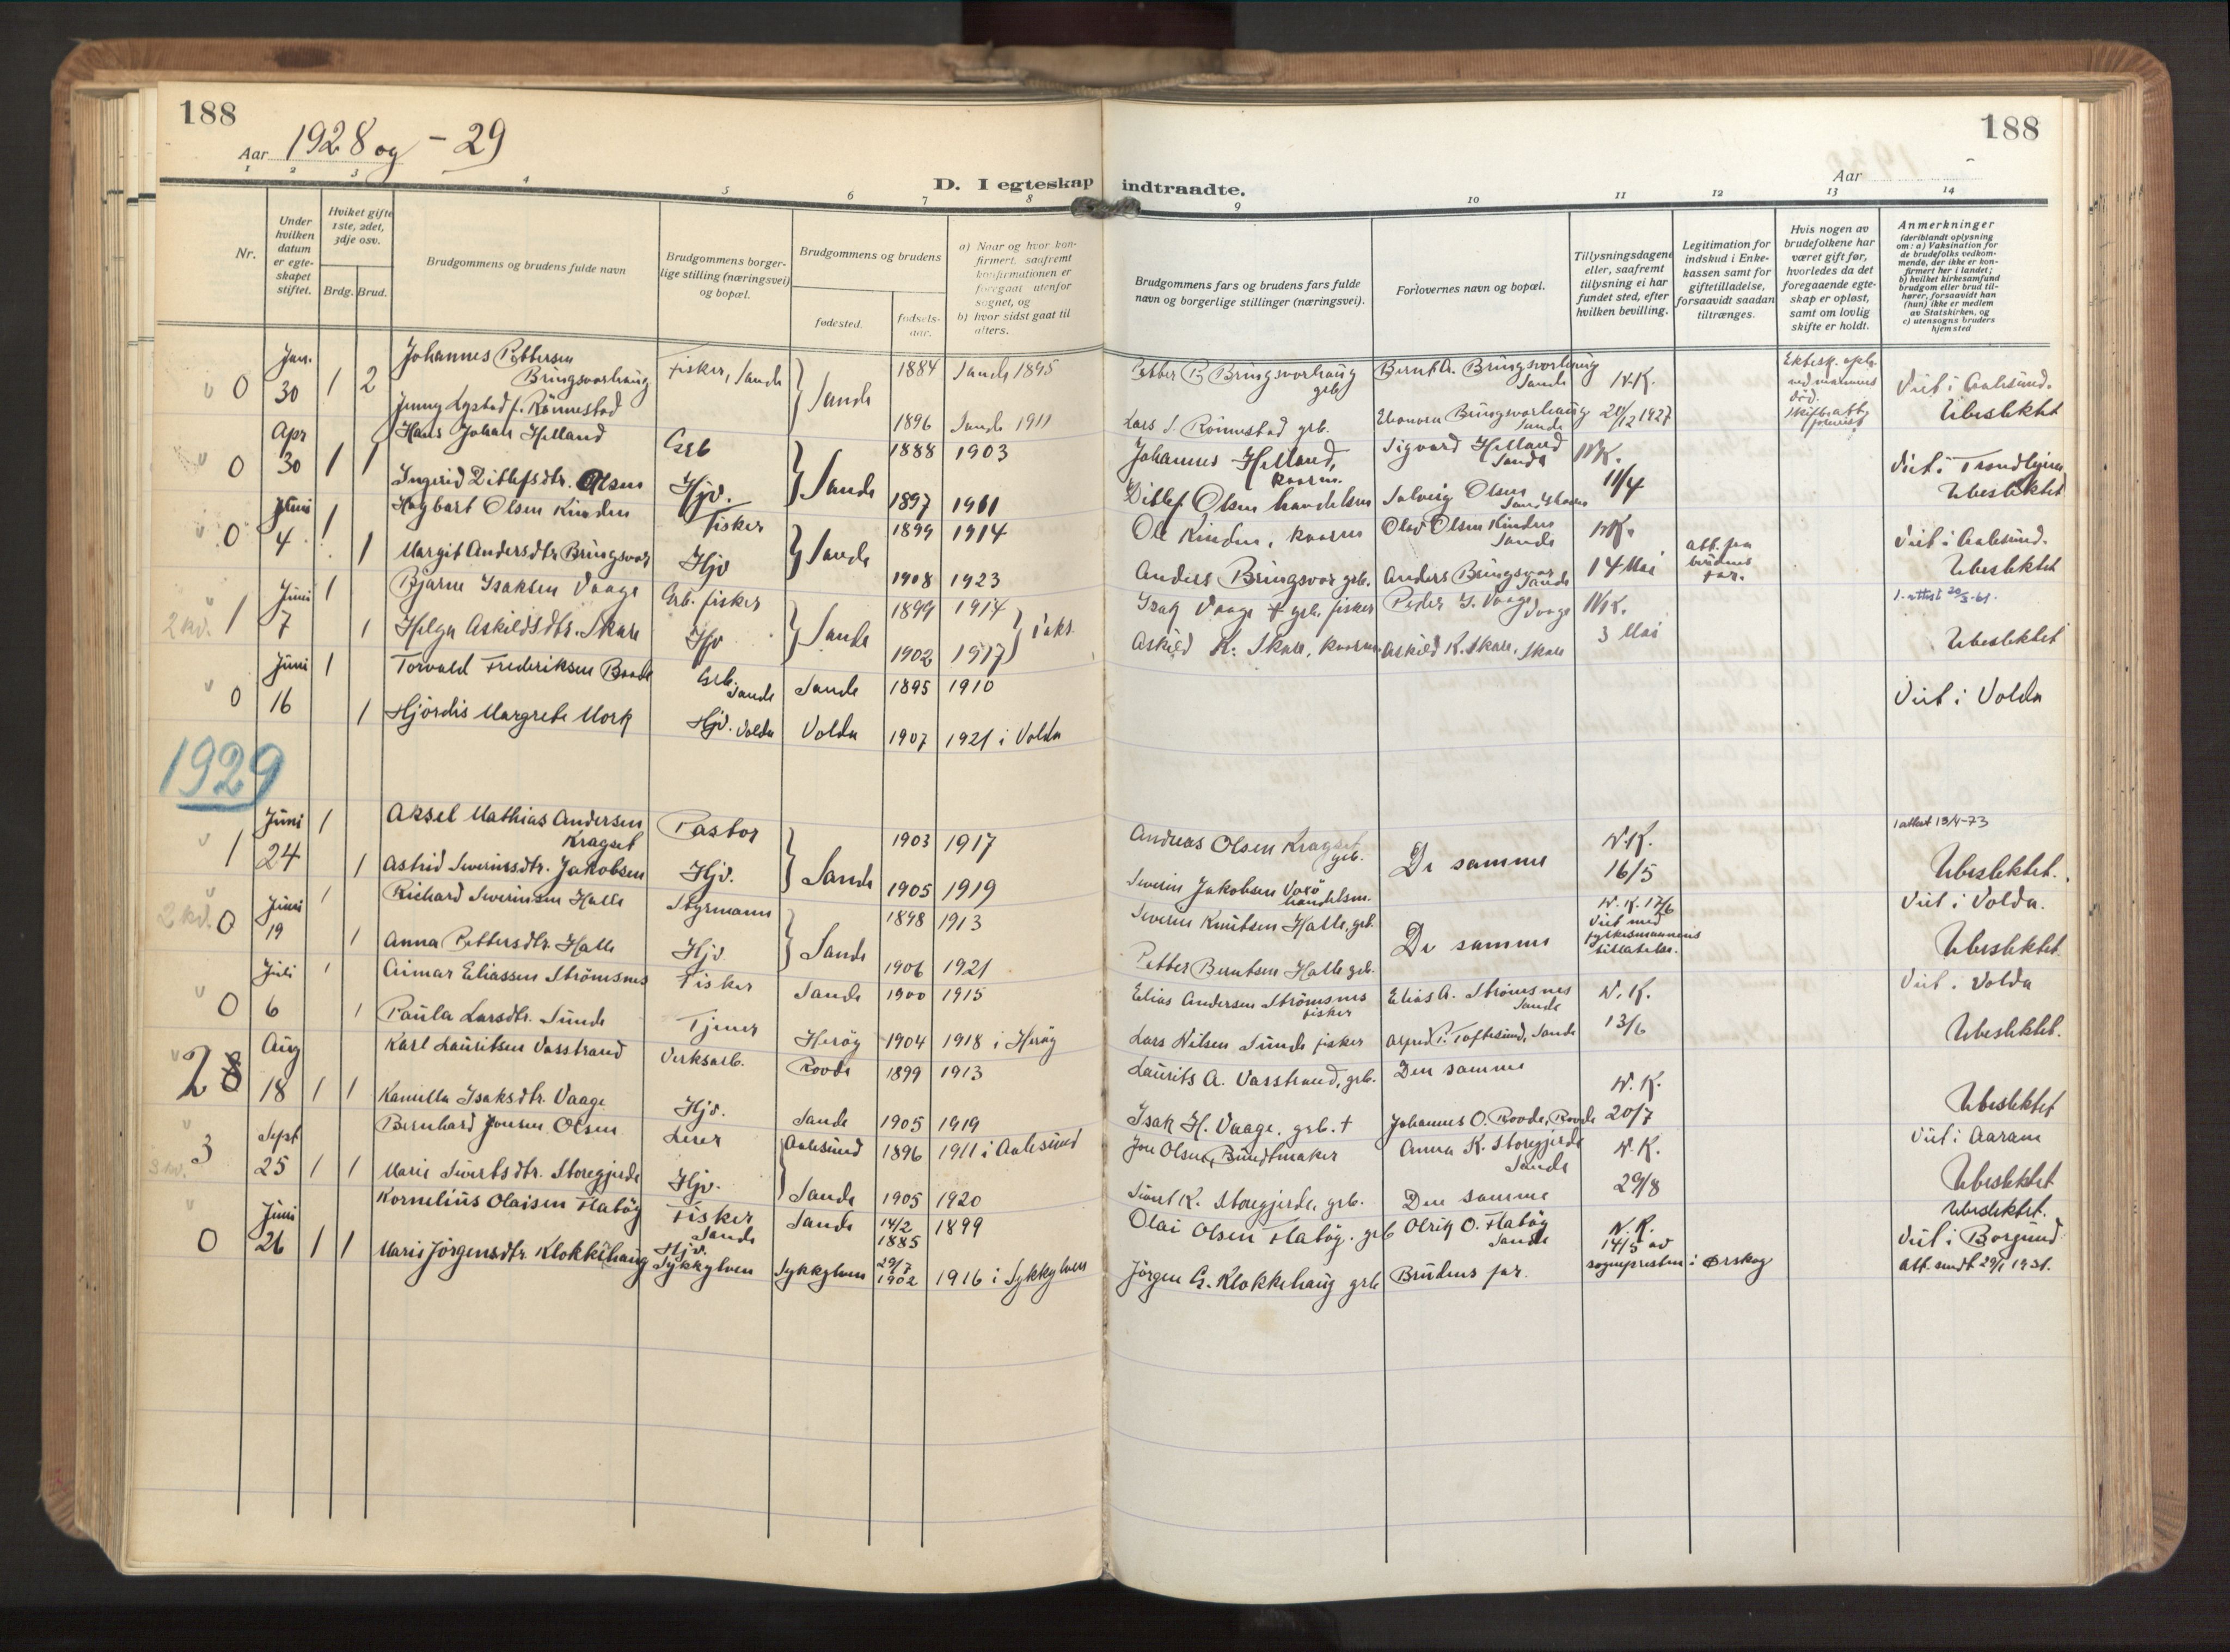 188
188
Aar 1928 og - 29
Aar
D. I egteskap indtraadte.
1 2 3 4 5 6 7 8 9 10 11 12 13 14
Nr.
Under hvilken datum er egteskapet stiftet.
Hvilket gifte 1ste, 2det, 3dje osv.
Brdg. Brud.
Brudgommens og brudens fulde navn
Brudgommens borgerlige stilling (næringsvei) og bopæl.
Brudgommens og brudens
fødested.
fødselsaar.
a) Naar og hvor konfirmert, saafremt konfirmationen er foregaat utenfor sognet, og
b) hvor sidst gaat til alters.
Brudgommens fars og brudens fars fulde navn og borgerlige stillinger (næringsvei).
Forlovernes navn og bopæl.
Tillysningsdagene eller, saafremt tillysning ei har fundet sted, efter hvilken bevilling.
Legitimation for indskud i Enkekassen samt for giftetilladelse, forsaavidt saadan tiltrænges.
Hvis nogen av brudefolkene har været gift før, hvorledes da det foregaaende egteskap er opløst, samt om lovlig skifte er holdt.
Anmerkninger
(deriblandt oplysning om: a) Vaksination for de brudefolks vedkommende, der ikke er konfirmert her i landet; b) hvilket kirkesamfund brudgom eller brud tilhører, forsaavidt han (hun) ikke er medlem av Statskirken, og c) utensogns bruders hjemsted
0 Jan. 30 1 2 Johannes Pettersen Bringsvorhaug Fisker, Sande Sande 1884 Sande 1895 Petter P. Bringsvorhaug grb Bernt A. Bringsvorhaug Sande N.K. Viet i Aalesund.
Jenny Lystad f. Rönnestad 1896 Sande 1911 Lars S. Rönnestad grb. Bringsvorhaug Sande 20/12 1927 Ubeslektet
0 Apr 30 1 1 Hans Johan Helland Grb Sande 1888 1903 Johannes Helland, kaarm. Sigvard Helland Sande N.K. Viet i Trondhjem
Ingerid Ditlefsdtr. Olsen Hjv. 1897 1911 Ditlef Olsen handelsm Solveig Olsen 11/4 Ubeslektet
0 Juni 4 1 Hagbart Olsen Kinden Fisker Sande 1899 1914 Ole Kinden, kaarm Olav Olsen Kinden Sande N.K. Viet i Aalesund.
1 Margit Andersdtr Bringsvor Hjv 1908 1923 Anders Bringsvor grb. Anders Bringsvor Sande 14 Mai att. fra brudens far. Ubeslektet
2 kv. 1 Juni 7 1 Bjarne Isaksen Vaage Grb. fisker Sande 1899 1914 Isak Vaage † grb. fisker Peder I. Vaage Vaage N.K. 1. attest 20/3-61.
1 Helga Askildsdtr. Skare Hjv 1902 1917 Askild K. Skare, kaarm. Askild K. Skare, Skare 3 Mai Ubeslektet
0 Juni 16 1 Torvald Frederiksen Grb. Sande Sande 1895 1910 Viet i Volda
1 Hjördis Margrete Mork Hjv. Volda Volda 1907 1921 i Volda
1929
1 Juni 24 1 Aksel Mathias Andersen Kragset Pastor Sande 1903 1917 Andreas Olsen Kragset grb. De samme N.K. 1 attest 13/4-73
1 Astrid Severinsdtr. Jakobsen Hjv. 1905 1919 Severin Jakobsen handelsm. 16/5 Ubeslektet.
2 kv. 0 Juni 19 1 Richard Severinsen Halle Styrmann Sande 1898 1913 Severin Knutsen Halle, grb. De samme N.K. 17/6 Viet med fylkesmannens tillatelse. Viet i Volda.
1 Anna Pettersdtr. Halle Hjv. 1906 1921 Petter Berntsen Halle grb. Ubeslektet.
0 Juli 6 1 Eliassen Strömsnes Fisker Sande 1900 1915 Elias Andersen Strömsnes fisker Elias A. Strömsnes Sande N.K. Viet i Volda
1 Paula Larsdtr. Sunde Tjener Heröy 1904 1918 i Heröy Lars Nilsen Sunde fisker Alfred P. Toftesund, Sande 13/6 Ubeslektet.
2 Aug 18 1 Karl Lauritsen Vasstrand Verksarb. Rovde 1899 1913 Laurits A. Vasstrand, grb. Den samme N.K.
1 Kamilla Isaksdtr. Vaage Hjv. Sande 1905 1919 Isak H. Vaage. grb. † Johannes O. Rovde, Rovde 20/7 Ubeslektet
3 Sept 25 1 Bernhard Jonsen Olsen Lærer Aalesund 1896 1911 i Aalesund Jon Olsen, Bundtmaker Anna K. Storegjerde Sande N.K. Viet i Aaram
1 Marie Sivertsdtr. Storegjerde Hjv. Sande 1905 1920 Sivert K. Storegjerde, grb. Den samme 29/8 Ubeslektet
0 Juni 26 1 Kornelius Olaisen Hatöy Fisker Sande Sande 14/2 1885 1899 Olai Olsen Hatöy. grb Olrik O. Hatöy Sande N.K. 14/5 av Ubeslektet. Viet i Borgund
1 Marie Jörgensdtr. Klokkehaug Hjv. Sykkylven Sykkylven 29/7 1902 1916 i Sykkylven Jörgen G. Klokkehaug grb Brudens far. sognepresten i Ørskog Att. sendt 29/1 1931.